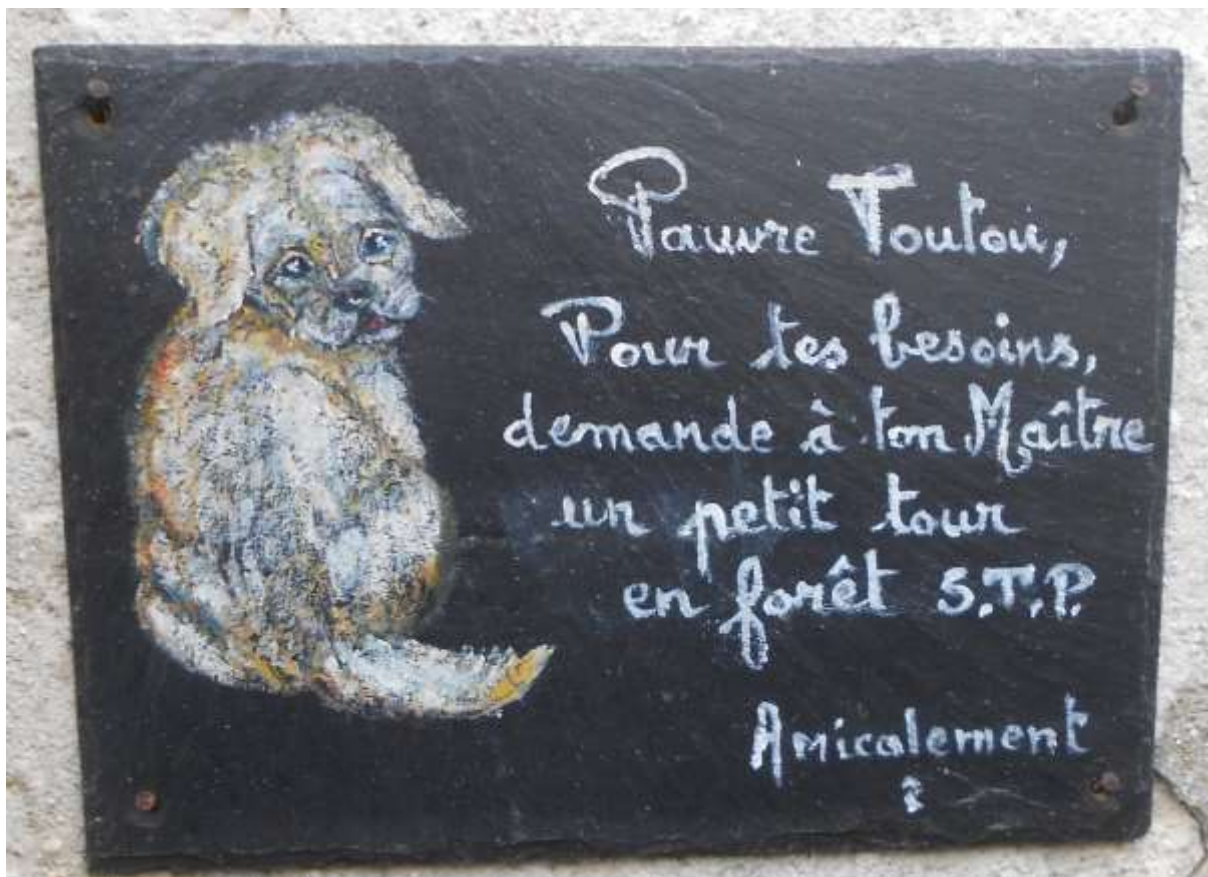 Pauvre Toutou,
Pour tes besoins,
demande à ton Maître
un petit tour
en forêt S.T.P.
Amicalement